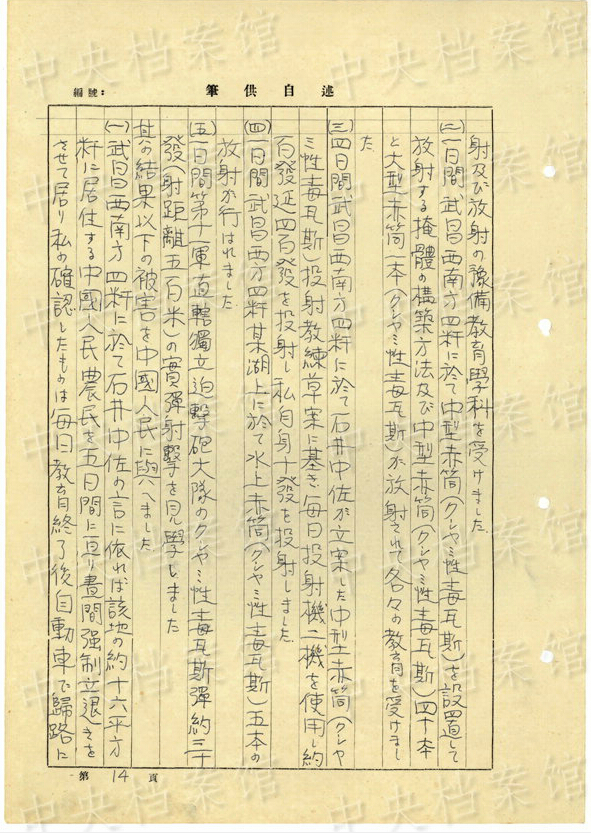 編號：
述自供筆
射及び放射の豫備教育學科を受けました
(二)一日間武昌西南方四粁に於て中型赤筒(クシャミ性毒瓦斯)を設置して
放射する掩體の構築方法及び中型赤筒(クシャミ性毒瓦斯)四十本
と大型赤筒一本(クシャミ性毒瓦斯)が放射されて各々の教育を受けまし
た
(三)四日間武昌西南方四粁に於て石井中佐が立案した中型赤筒(クシャ
ミ性毒瓦斯)投射教練草案に基き毎日投射機二機を使用し約
百發延四百發を投射し私自身十發を投射しました
(四)一日間武昌西方四粁某湖上に於て水上赤筒(クシャミ性毒瓦斯)五本の
放射が行はれました
(五)一日間第十一軍直轄獨立迫擊砲大隊のクシャミ性毒瓦斯彈約三十
發(射距離五百米)の實彈射擊を見學しました
其の結果以下の被害を中國人民に與へました
(一)武昌西南方四粁に於て石井中佐の言に依れば該地の約十六平方
粁に居住する中國人民農民を五日間に亘り晝間強制立退きを
させて居り私の確認したものは毎日教育終了後自動車で歸路に
第14頁
中央档案馆